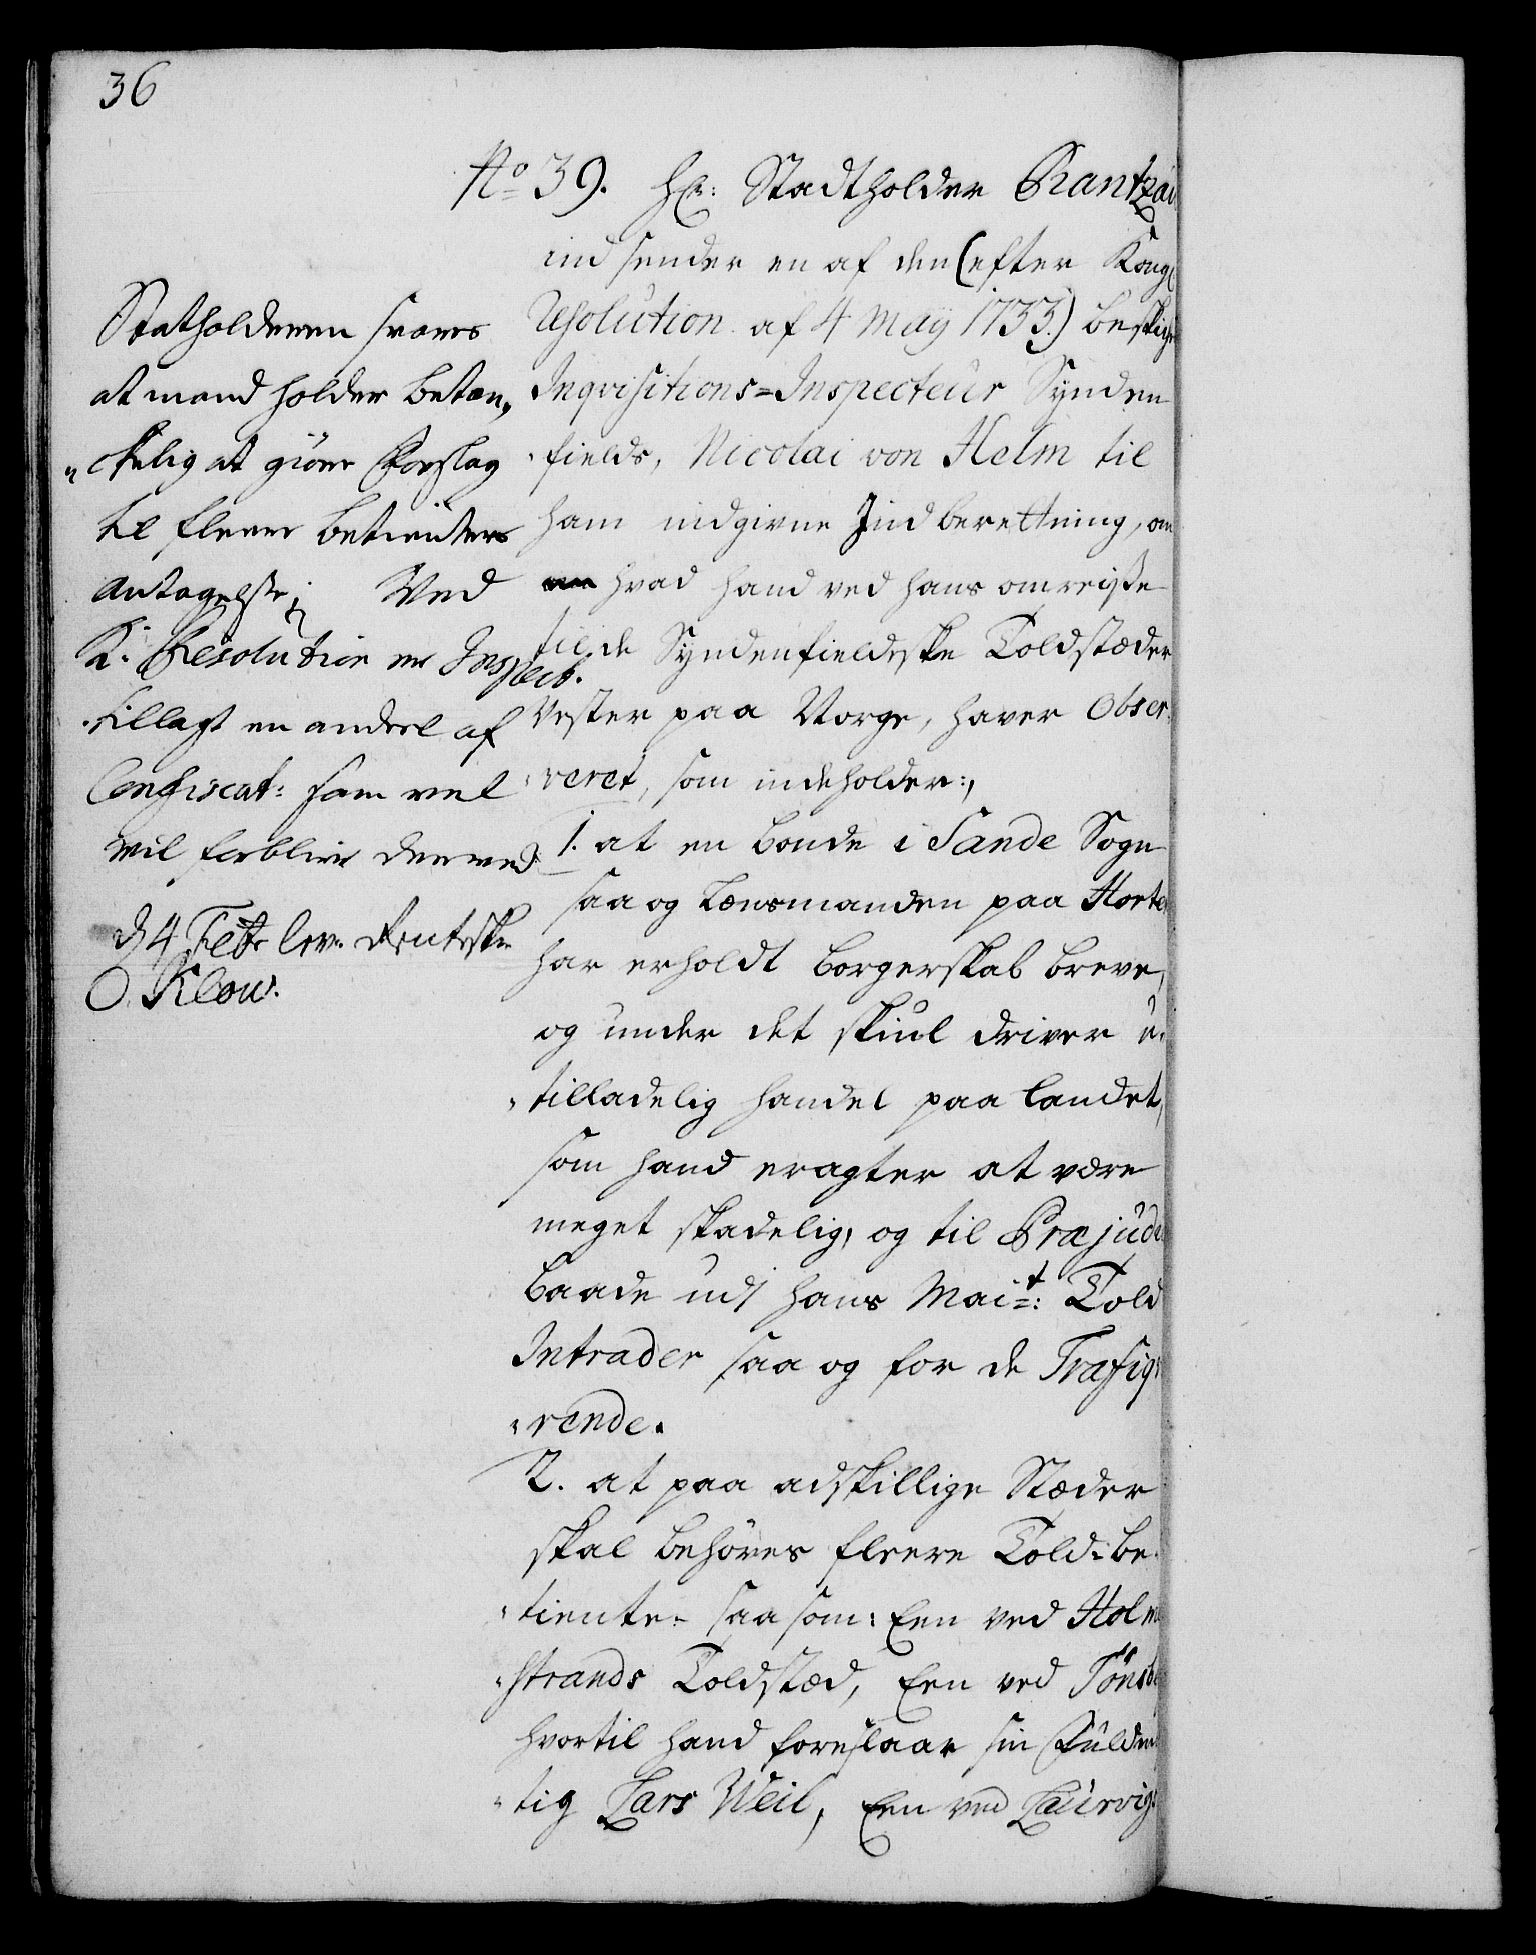 36
No 39. Hr: Stadtholder Rantzau
indsender en af den (efter Kongl
Resolution af 4 Maÿ 1733.) beskick
Inqvisitions=Inspecteur Synden
fields, Nicolai von Helm til
ham indgivne Indberettning, om
hvad hand ved hans omreiße
til de Syndenfieldske Toldstæder
Vester paa Norge, haver Obser
veret, som indeholder:,
1. at en bonde i Sande Sogn
saa og Lænsmanden paa Horte
har erholdt borgerskab breve,
og under det skiul driver u
tilladelig handel paa landet,
som hand eragter at være
meget skadelig, og til Præjud
baade udi hans Mait: Told
Intrader saa og for de Trafiq
rende.
2. at paa adskillige Stæder
skal behöves fleere Told-be
tiente- saa som: Een ved Holm
strands Toldstæd, Een ved Tönsb
hvortil hand foreslaar sin Fuldm
tig Lars Weil, Een ved Laurvig
Statholderen svares
at mand holder betæn
ckelig at giöre Forslag
til fleere betienters
antagelse; Ved
K: Resolution er Inspect.
tillagt en andeel af
Confiscat: som vel
vil forblive derved
d 4 Febr lev: Renteskr
O. Klow.